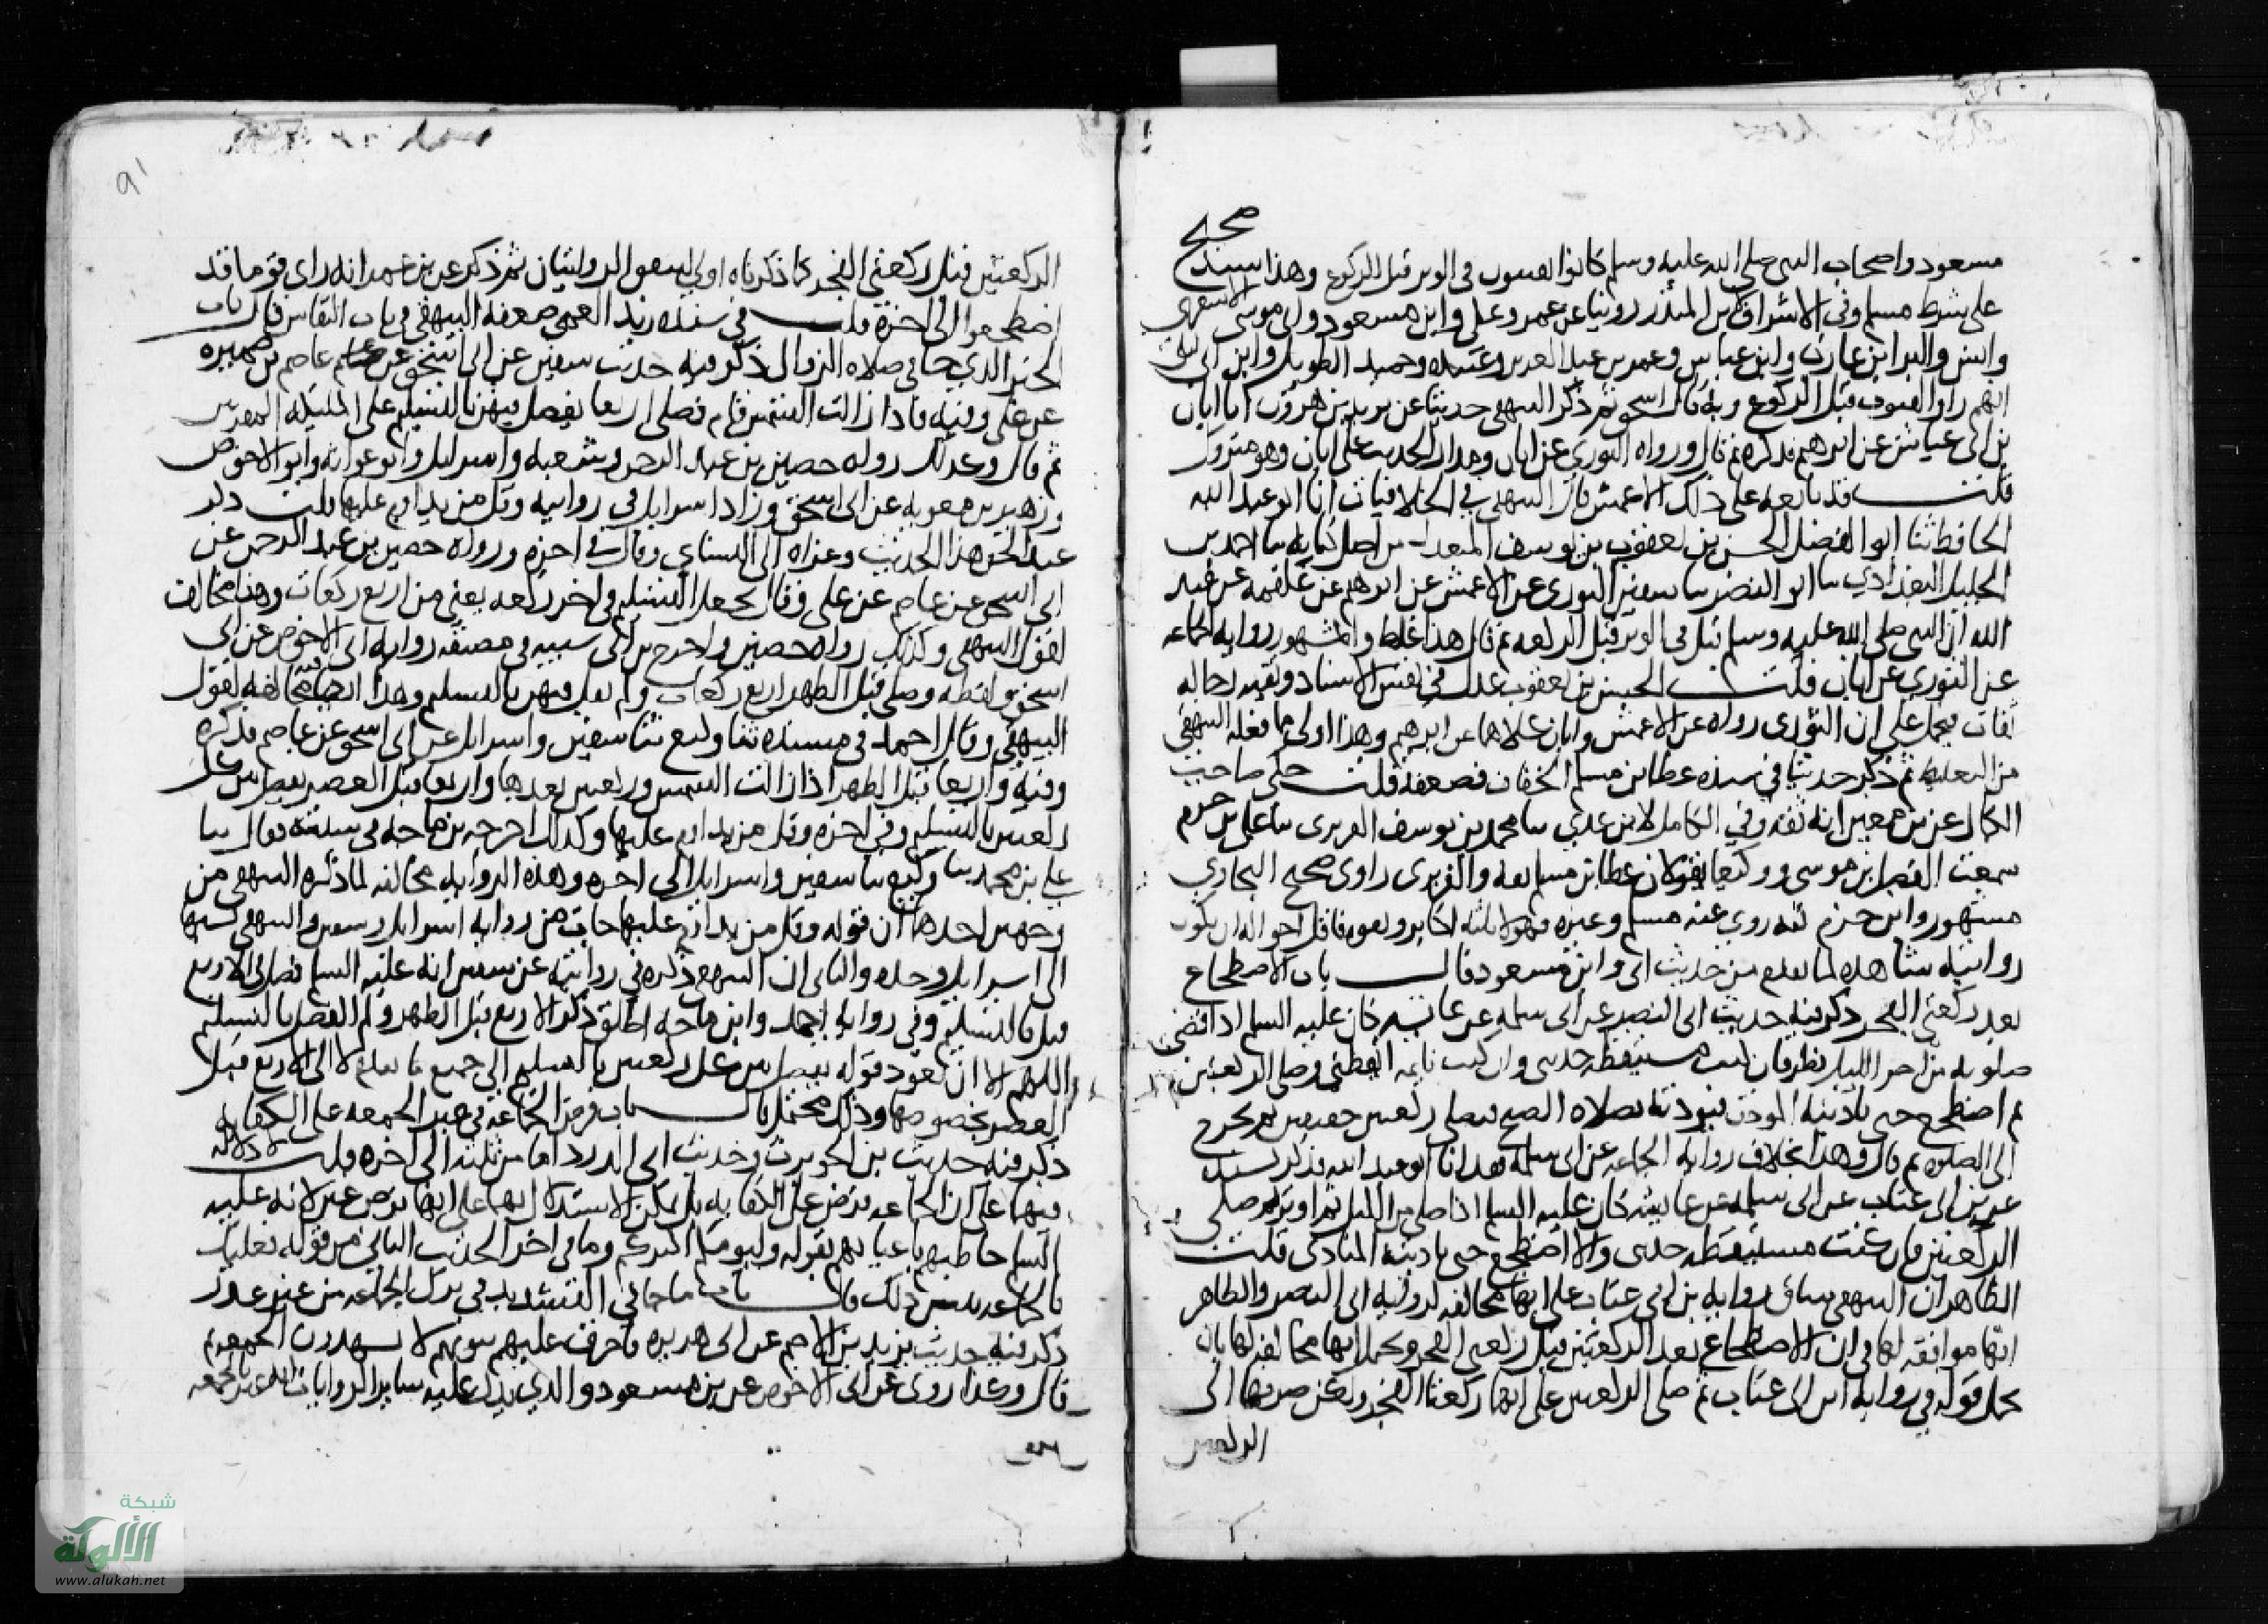 صحيح
مسعود واصحاب النبى صلى الله عليه وسلم كانوا يقنتون فى الوتر قبل الركوع وهذا سند
على شرط مسلم وفى الاشراف لابن المنذر روينا عن عمر وعلى وابن مسعود وابى موسى الاشعرى
وانس والبرا ابن عازب وابن عباس وعمر بن عبد العزيز وعبيدة وحميد الطويل وابن ابى ليلى
انهم راوا القنوت قبل الركوع وبه قال اسحق ثم ذكر البيهقى حديثا عن يزيد بن هرون انا ابان
بن ابى عياش عن ابرهيم فذكره ثم قال ورواه الثورى عن ابان ومدار الحديث على ابان وهو متروك
قلت قد تابعه على ذلك الاعمش قال البيهقى فى الخلافيات انا ابو عبد الله
الحافظ ثنا ابو الفضل الحسن بن يعقوب بن يوسف المعدل من اصل كتابه ثنا احمد بن
الخليل البغدادي ثنا ابو النضر ثنا سفين الثورى عن الاعمش عن ابرهيم عن علقمه عن عبد
الله ان النبى صلى الله عليه وسلم قنت فى الوتر قبل الركعه ثم قال هذا غلط والمشهور روايه الجماعه
عن الثورى عن ابان قلت الحسن بن يعقوب عدل فى نفس الاسناد وبقيه رجاله
ثقات فيحمل على ان الثورى رواه عن الاعمش وابان كلاهما عن ابرهيم وهذا اولى مما فعله البيهقى
من التغليط ثم ذكر حديثا فى سنده عطا بن مسلم الخفاف فضعفه قلت حكى صاحب
الكمال عن بن معين انه ثقه وفى الكامل لابن عدي ثنا محمد بن يوسف الفربرى ثنا على بن خرم
سمعت الفضل بن موسى ووكيعا يقولان عطا بن مسلم ثقه والفربرى راوى صحيح البخارى
مشهور وابن خرم ثقه روى عنه مسلم وغيره فهولا ثلثه اكابر وثقوه فاقل احواله ان يكون
روايته شاهده لما تقدم من حديث ابى وابن مسعود قال باب الاضطجاع
بعد ركعتى الفجر ذكر فيه حديث ابى النضر عن ابى سلمه عن عايشه كان عليه السلم اذا قضى
صلوته من اخر الليل نظر فان كنت مستيقظه حدثنى وان كنت نايمه ايقظنى وصلى الركعتين
ثم اضطجع حتى ياتيه الموذن فيوذنه بصلاه الصبح فيصلى ركعتين خفيفتين ثم يخرج
الى الصلوه ثم قال وهذا بخلاف روايه الجماعه عن ابى سلمه فقد انا ابو عبد الله فذكر بسنده
عن بن ابى عتاب عن ابى سلمه عن عايشه كان عليه السلم اذا صلى من الليل ثم اوتر ثم صلى
الركعتين فان كنت مستيقظه حدثنى والا اضطجع حتى ياتيه المنادى قلت
الظاهر ان البيهقى ساق روايه بن ابى عتاب على انها مخالفه لروايه ابى النضر والظاهر
انها موافقه لها فى ان الاضطجاع بعد الركعتين قبل ركعتى الفجر ويحمل انها مخالفه لها بان
يحمل قوله فى روايه ابن ابى عتاب ثم صلى الركعتين على انهما ركعتا الفجر ولكن صرفها الى
الركعتين
91
الركعتين قبل ركعتى الفجر كما ذكرناه اولى لتتفق الروايتان ثم ذكر عن بن عمر انه راى قوما قد
اضطجعوا الى اخره قلت فى سنده زيد العمى ضعفه البيهقى فى باب النفاس قال باب
الخبر الذي جا فى صلاه الزوال ذكر فيه حديث سفين عن ابى اسحق عن عاصم بن ضمره
عن على وفيه فاذا زالت الشمس قام فصلى اربعا يفصل فيهن بالتسليم على المليكه المقربين
ثم قال وكذلك رواه حصين بن عبد الرحمن وشعبه واسرايل وابو عوانه وابو الاحوص
وزهير بن معويه عن ابى اسحق وزاد اسرايل فى روايته وقل من يداوم عليها قلت ذكر
عبد الحق هذا الحديث وعزاه الى النساي وقال فى اخره ورواه حصين بن عبد الرحمن عن
ابى اسحق عن عاصم عن على وقال يجعل التسليم فى اخر ركعه يعنى من اربع ركعات وهذا مخالف
لقول البيهقى وكذلك رواه حصين واخرج بن ابى شيبه فى مصنفه روايه ابى الاحوص عن ابى
اسحق ولفظه وصلى قبل الظهر اربع ركعات ولم يقل فيهن بالتسليم وهذا ايضا مخالفه لقول
البيهقى وقال احمد فى مسنده ثنا وكيع ثنا سفين واسرايل عن ابى اسحق عن عاصم فذكره
وفيه واربعا قبل الظهر اذا زالت الشمس وركعتين بعدها واربعا قبل العصر يفصل بين كل
ركعتين بالتسليم وفى اخره وقل من يداوم عليها وكذلك اخرجه بن ماجه فى سننه فقال ثنا
على بن محمد ثنا وكيع ثنا سفين واسرايل الى اخره وهذه الروايه مخالفه لما ذكره البيهقى من
وجهين احدهما ان قوله وقل من يداوم عليها جات من روايه اسرايل وسفين والبيهقى نسبها
الى اسرايل وحده والثانى ان البيهقى ذكره فى روايته عن سفين انه عليه السلم فصل فى الاربع
قبل بالتسليم وفى روايه احمد وابن ماجه اطلق ذكر الاربع قبل الظهر ولم يفصل بالتسليم
اللهم الا ان يعود قوله يفصل بين كل ركعتين بالتسليم الى جميع ما تقدم لا الى الاربع قبل
العصر بخصوصها وذلك محتمل قال باب فرض الجماعه فى غير الجمعه على الكفايه
ذكر فيه حديث بن الحويرث وحديث ابى الدرداء ما من ثلثه الى اخره قلت لا دلاله
فيهما على ان الجماعه فرض على الكفايه بل يمكن الاستدلال بهما على انها فرض عين لانه عليه
السلم خاطبهم باعيانهم بقوله وليومكم اكبركم وما فى اخر الحديث الثانى من قوله فعليك
بالجماعه يبين ذلك قال باب ما جا فى التشديد فى ترك الجماعه من غير عذر
ذكر فيه حديث يزيد بن الاصم عن ابى هريره فاحرق عليهم بيوتهم لا يشهدون الجمعه ثم
قال وكذا روى عن ابى الاحوص عن بن مسعود والذي يدل عليه ساير الروايات انه عبر بالجمعه
شبكة
الألوكة
www.alukah.net